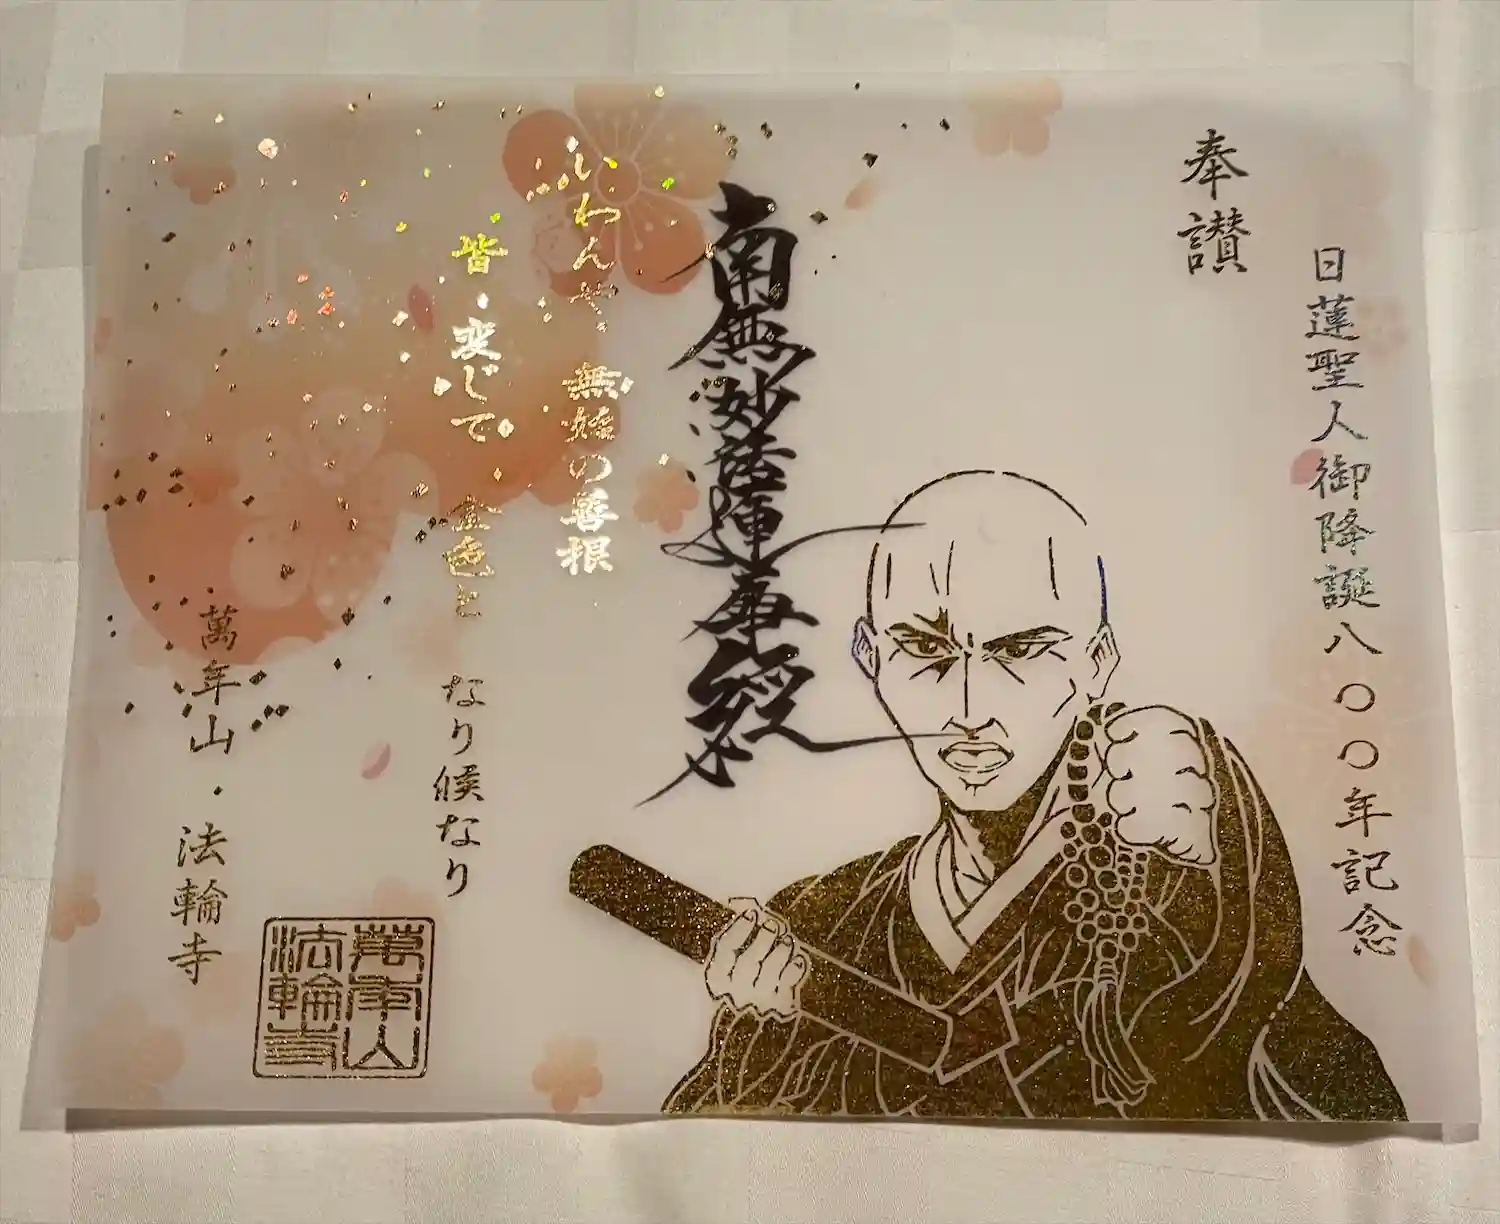 奉讃
日蓮聖人御降誕八〇〇年記念
南無妙法蓮華経
いわんや、無始の善根
皆・変じて、金色と
なり候なり
萬年山・法輪寺
萬年山
法輪寺